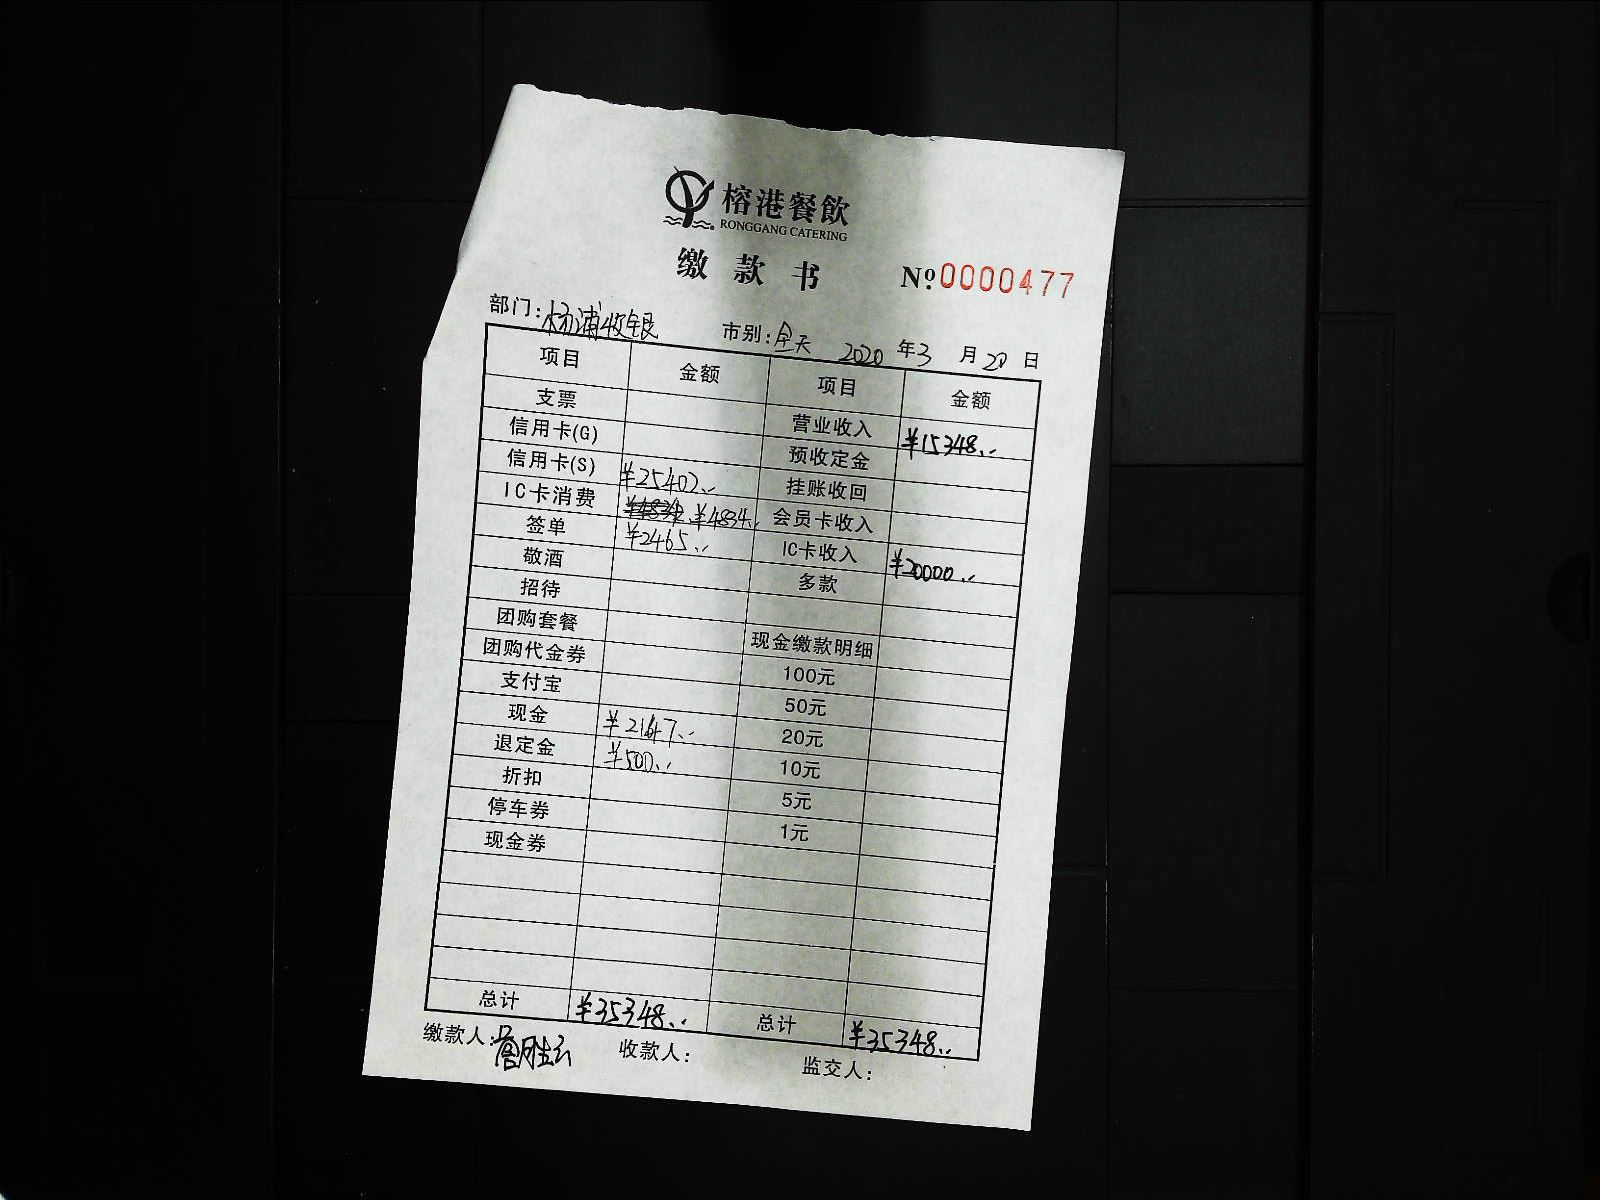 榕港餐飲
RONGGANG CATERING
缴款书 №0000477
部门:杨浦收银 市别:全天 2020年3月20日
项目 金额 项目 金额
支票 营业收入 ¥15348..
信用卡(G) 预收定金
信用卡(S) ¥25402.. 挂账收回
IC卡消费 ¥4834. ¥4834.. 会员卡收入
签单 ¥2465.. IC卡收入 ¥20000..
敬酒 多款
招待
团购套餐 现金缴款明细
团购代金券 100元
支付宝 50元
现金 ¥2147.. 20元
退定金 ¥500.. 10元
折扣 5元
停车券 1元
现金券
总计 ¥35348.. 总计 ¥35348..
缴款人: 收款人: 监交人: